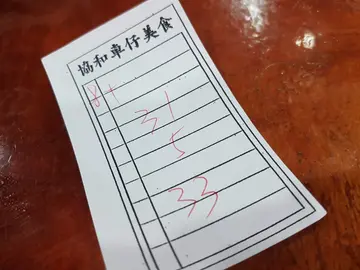 協和車仔美食
31
5
33